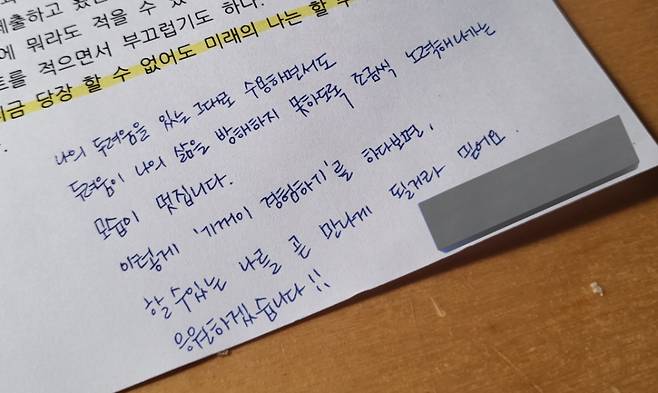 제출하고
에 뭐라도 적을 수 있
트를 적으면서 부끄럽기도 하다.
금 당장 할 수 없어도 미래의 나는 할 수
나의 두려움을 있는 그대로 수용하면서도
두려움이 나의 삶을 방해하지 못하도록 조금씩 노력해나가는
모습이 멋집니다.
이렇게 '기꺼이 경험하기'를 하다보면,
할 수 있는 나를 곧 만나게 될거라 믿어요.
응원하겠습니다!!